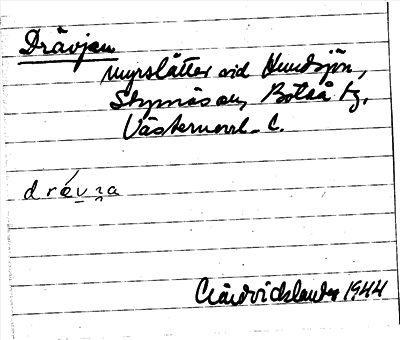 Drävjan
myrslåtter vid Hundsjön,
Styrnäs sn, Boteå tg,
Västernorrl. l.
drévna
Nordvidlander 1944